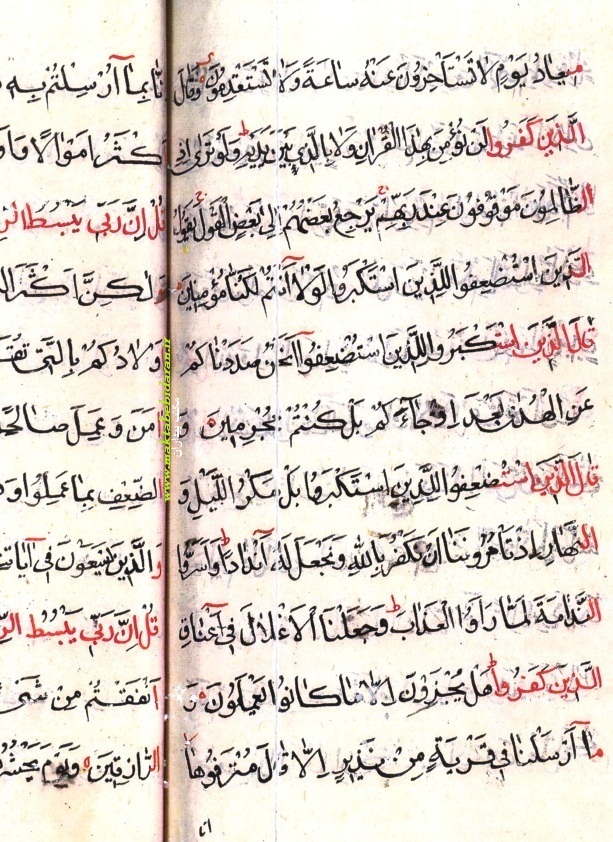 مِيعَادُ يَوْمٍ لَا تَسْتَأْخِرُونَ عَنْهُ سَاعَةً وَلَا تَسْتَقْدِمُونَ وَقَالَ
الَّذِينَ كَفَرُوا لَنْ نُؤْمِنَ بِهٰذَا الْقُرْاٰنِ وَلَا بِالَّذِي بَيْنَ يَدَيْهِ وَلَوْ تَرٰى اِذِ
الظَّالِمُونَ مَوْقُوفُونَ عِنْدَ رَبِّهِمْ يَرْجِعُ بَعْضُهُمْ اِلٰى بَعْضٍ الْقَوْلَ يَقُولُ
الَّذِينَ اسْتُضْعِفُوا لِلَّذِينَ اسْتَكْبَرُوا لَوْلَا اَنْتُمْ لَكُنَّا مُؤْمِنِينَ
قَالَ الَّذِينَ اسْتَكْبَرُوا لِلَّذِينَ اسْتُضْعِفُوا اَنَحْنُ صَدَدْنَاكُمْ
عَنِ الْهُدٰى بَعْدَ اِذْ جَاءَكُمْ بَلْ كُنْتُمْ مُجْرِمِينَ وَ
قَالَ الَّذِينَ اسْتُضْعِفُوا لِلَّذِينَ اسْتَكْبَرُوا بَلْ مَكْرُ اللَّيْلِ وَ
النَّهَارِ اِذْ تَأْمُرُونَنَا اَنْ نَكْفُرَ بِاللّٰهِ وَنَجْعَلَ لَهُ اَنْدَادًا وَاَسَرُّوا
النَّدَامَةَ لَمَّا رَاَوُا الْعَذَابَ وَجَعَلْنَا الْاَغْلَالَ فِي اَعْنَاقِ
الَّذِينَ كَفَرُوا هَلْ يُجْزَوْنَ اِلَّا مَا كَانُوا يَعْمَلُونَ وَ
مَا اَرْسَلْنَا فِي قَرْيَةٍ مِنْ نَذِيرٍ اِلَّا قَالَ مُتْرَفُوهَا
انا
نَّا بِمَا اُرْسِلْتُمْ بِهِ
اَكْثَرُ اَمْوَالًا وَاَو
قُلْ اِنَّ رَبِّي يَبْسُطُ الر
وَلٰكِنَّ اَكْثَرَ ال
وَلَادُكُمْ بِالَّتِي تُقَ
اٰمَنَ وَعَمِلَ صَالِحًا
الضِّعْفِ بِمَا عَمِلُوا وَ
وَالَّذِينَ يَسْعَوْنَ فِي اٰيَاتِ
قُلْ اِنَّ رَبِّي يَبْسُطُ الرِّ
اَنْفَقْتُمْ مِنْ شَيْ
الرَّازِقِينَ وَيَوْمَ يَحْشُرُ
www.maktabebidaran.ir